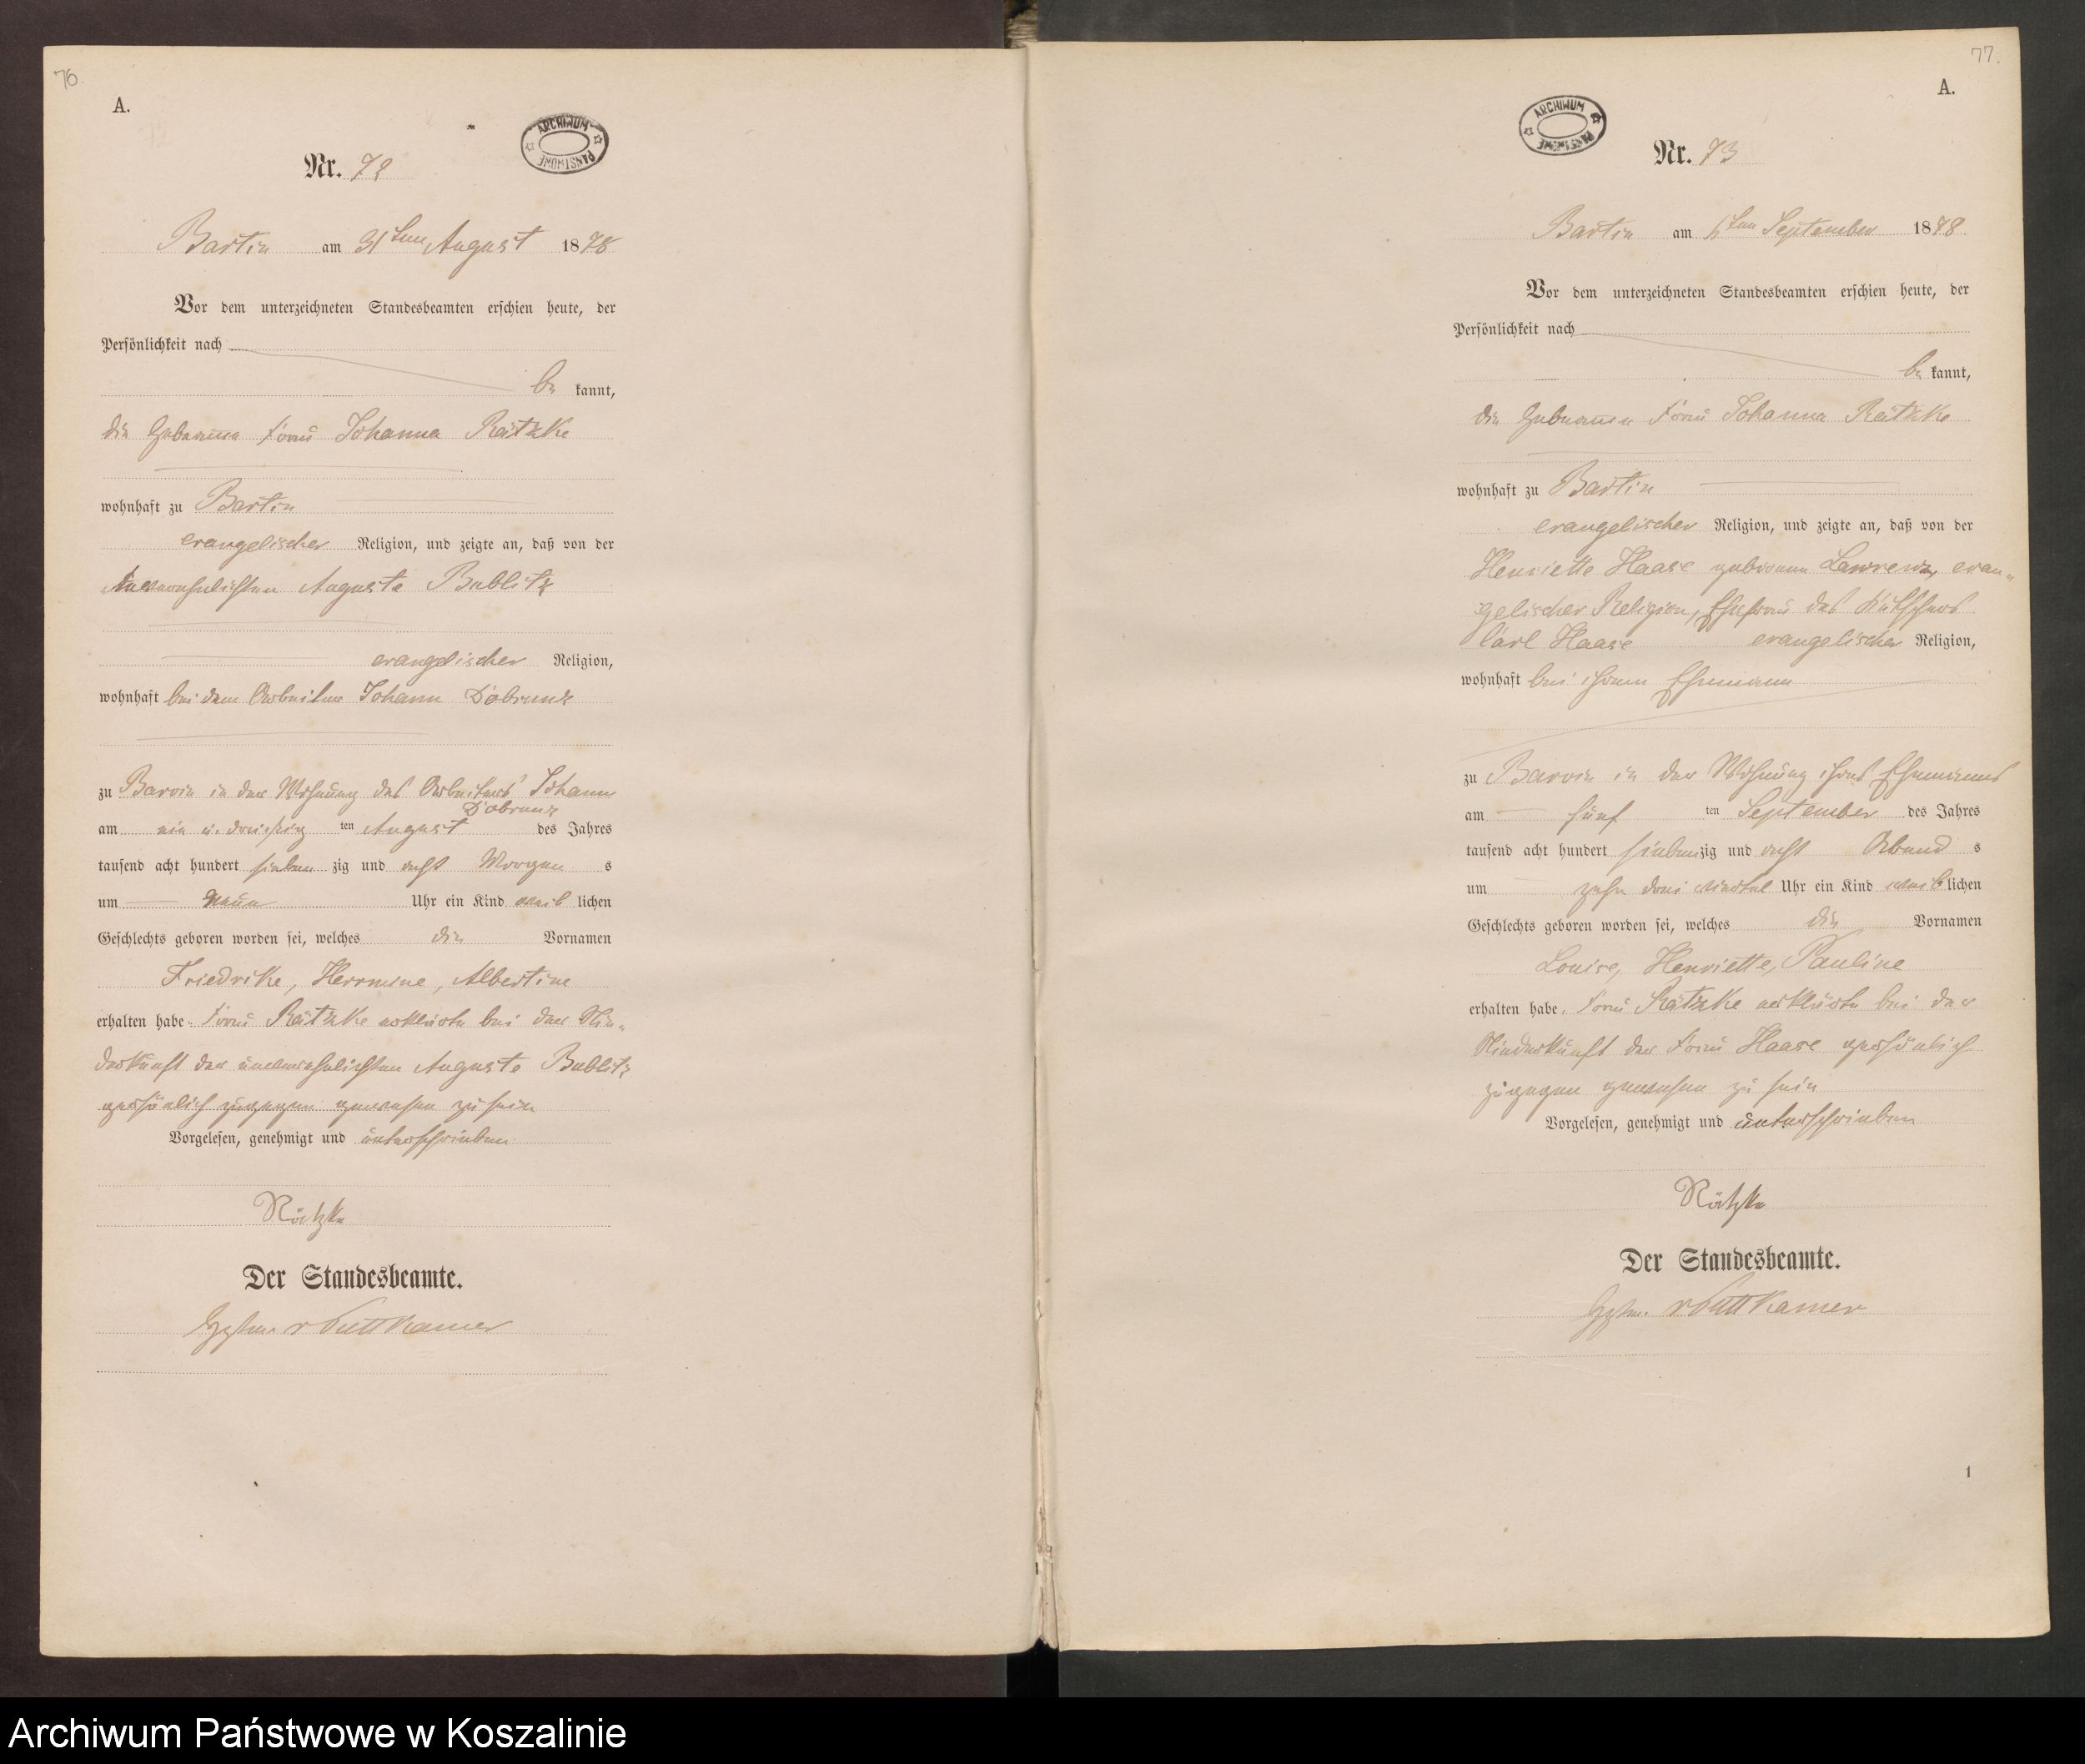 76.
A.
ARCHIWUM PAŃSTWOWE
Nr. 72
Bartin am 31ten August 1878
Vor dem unterzeichneten Standesbeamten erschien heute, der
Persönlichkeit nach
be kannt,
die Hebamme Frau Johanna Rätzke
wohnhaft zu Bartin
evangelischer Religion, und zeigte an, daß von der
Unverehelichten Auguste Bublitz
evangelischer Religion,
wohnhaft bei dem Arbeiter Johann Dobrunz
zu Barvin in der Wohnung des Arbeiters Johann
Dobrunz
am ein u. dreißig ten August des Jahres
tausend acht hundert sieben zig und acht Morgen s
um neun Uhr ein Kind weib lichen
Geschlechts geboren worden sei, welches die Vornamen
Friedrike, Hermine, Albertine
erhalten habe. Frau Rätzke erklärte bei der Nie-
derkunft der unverehelichten Auguste Bublitz
persönlich zugegen gewesen zu sein
Vorgelesen, genehmigt und unterschrieben
Rätzke
Der Standesbeamte.
v Puttkamer
77.
A.
ARCHIWUM PAŃSTWOWE
Nr. 73
Bartin am 6ten September 1878
Vor dem unterzeichneten Standesbeamten erschien heute, der
Persönlichkeit nach
be kannt,
die Hebamme Frau Johanna Rätzke
wohnhaft zu Bartin
evangelischer Religion, und zeigte an, daß von der
Henriette Haase geborene Lawrenz, evan-
gelischer Religion, Ehefrau des Kutschers
Carl Haase evangelischer Religion,
wohnhaft bei ihrem Ehemann
zu Barvin in der Wohnung ihres Ehemannes
am fünf ten September des Jahres
tausend acht hundert siebenzig und acht Abend s
um zehn drei viertel Uhr ein Kind weib lichen
Geschlechts geboren worden sei, welches die Vornamen
Louise, Henriette, Pauline
erhalten habe. Frau Rätzke erklärte bei der
Niederkunft der Frau Haase persönlich
zugegen gewesen zu sein
Vorgelesen, genehmigt und unterschrieben
Rätzke
Der Standesbeamte.
v Puttkamer
1
Archiwum Państwowe w Koszalinie